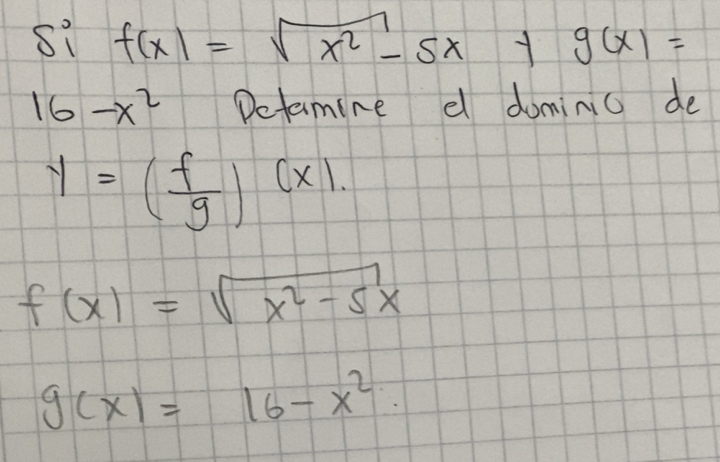 Si f(x) = √x² - 5x y g(x) =
16 - x² Determine el dominio de
y = (f/g) (x).
f(x) = √x² - 5x
g(x) = 16 - x².